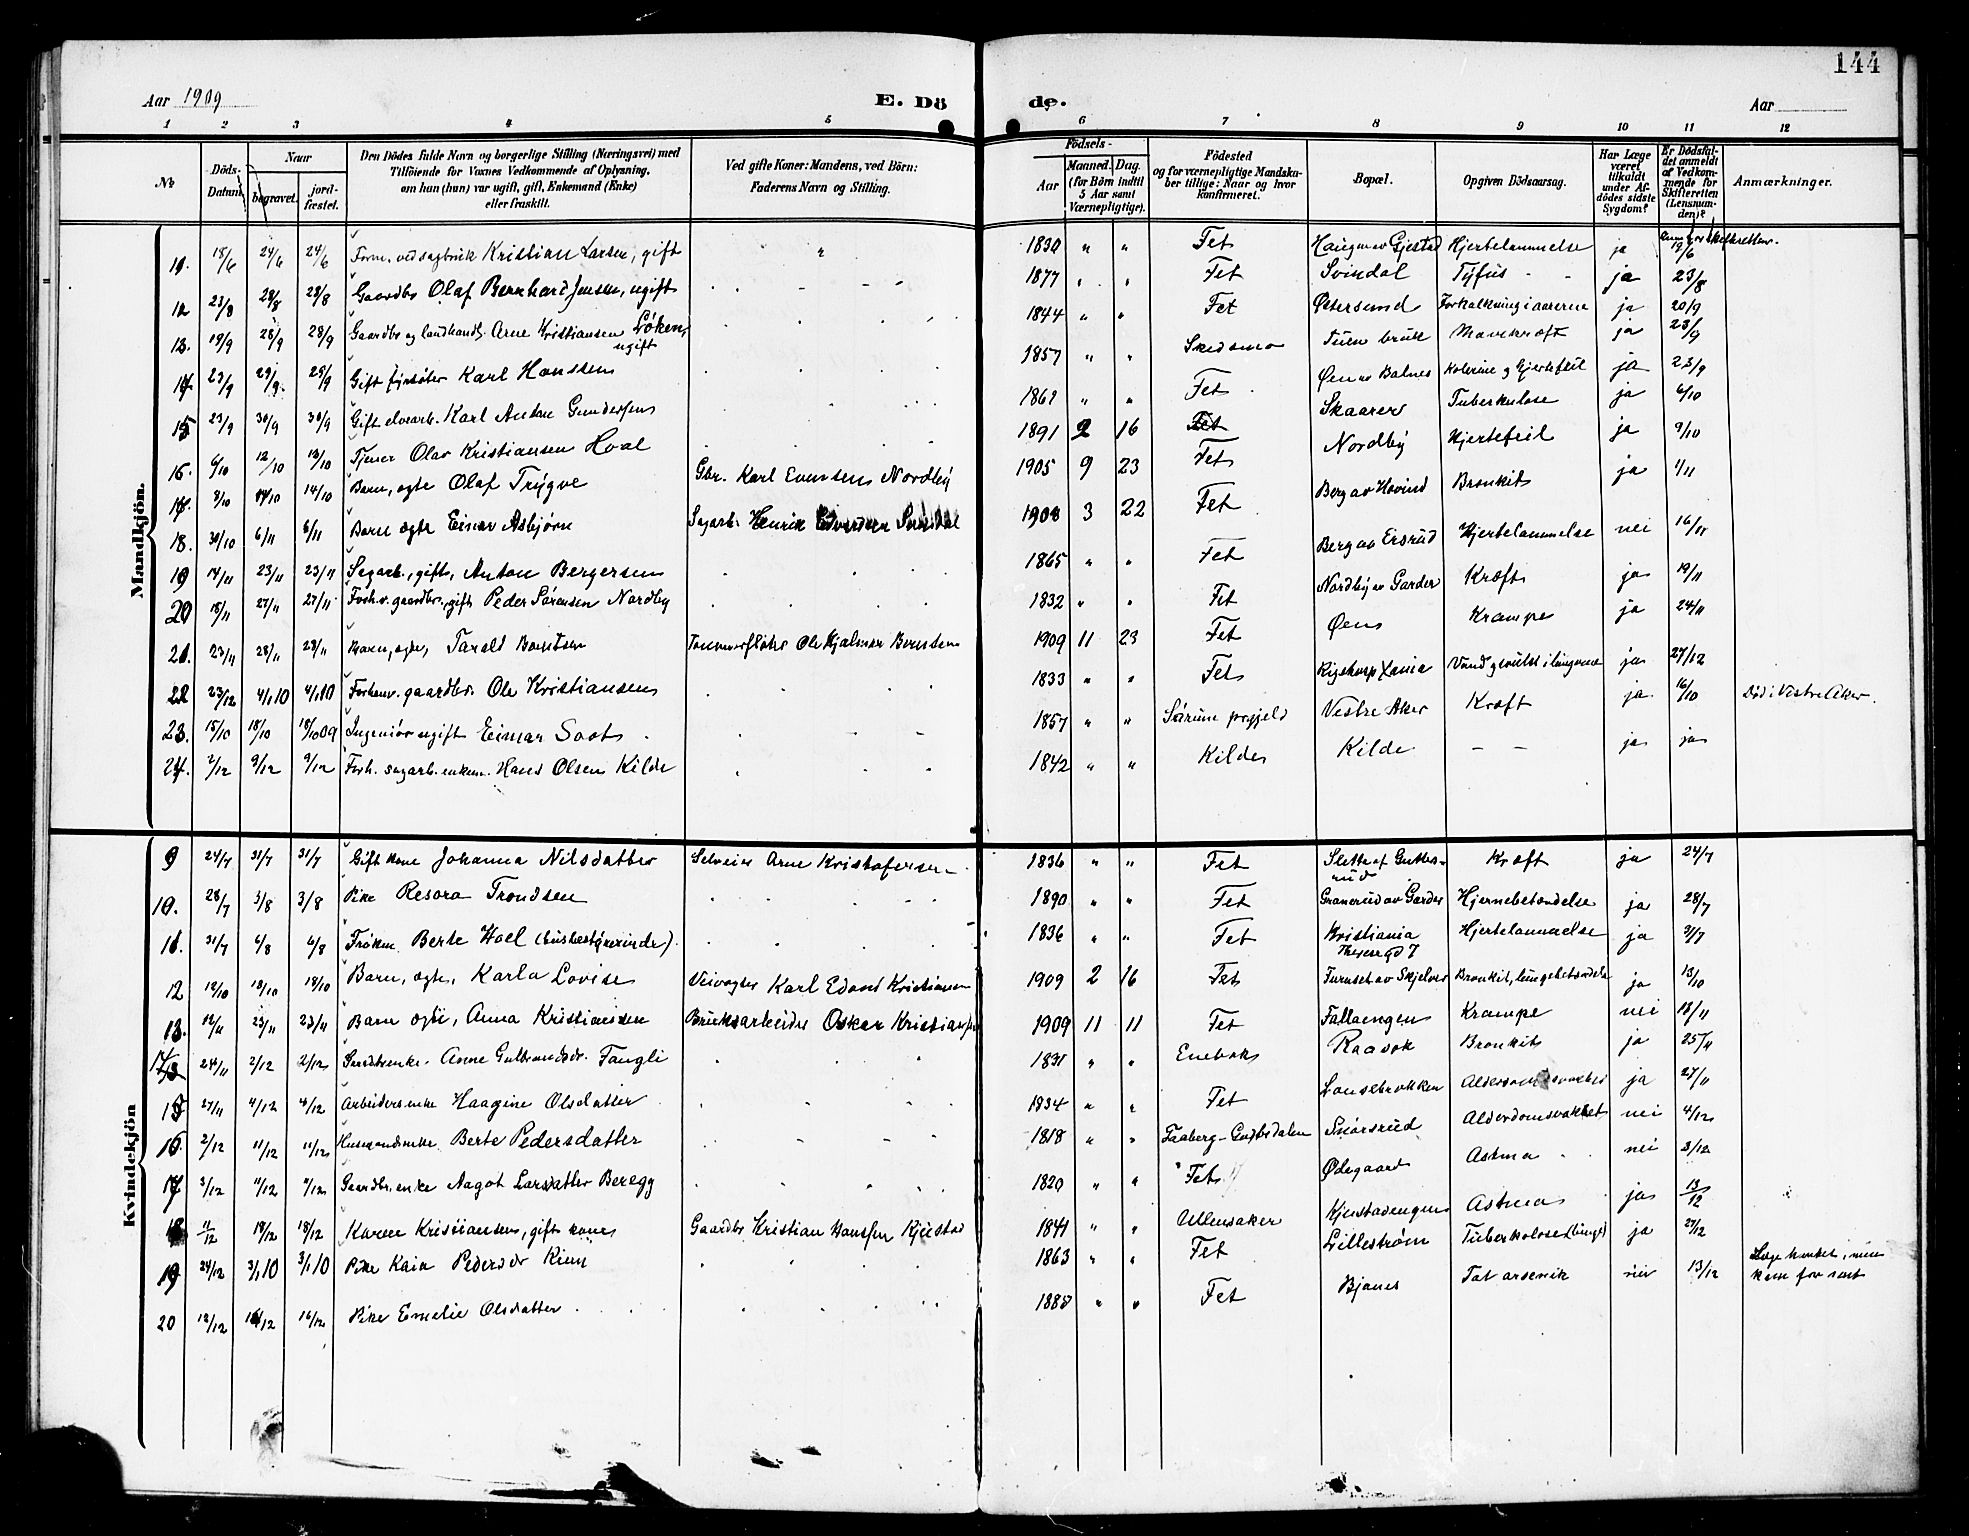 144
Aar 1909 E. Dö de. Aar
1 2 3 4 5 6 7 8 9 10 11 12
No
Döds-Datum.
Naar
begravet.
jord-fæstet.
Den Dödes fulde Navn og borgerlige Stilling (Næringsvei) med
Tilföiende for Voxnes Vedkommende af Oplysning,
om han (hun) var ugift, gift, Enkemand (Enke)
eller fraskilt.
Ved gifte Koner: Mandens, ved Börn:
Faderens Navn og Stilling.
Födsels-
Aar
Maaned. Dag.
(for Börn indtil
5 Aar samt
Værnepligtige).
Födested
og for værnepligtige Mandska-
ber tillige: Naar og hvor
konfirmeret.
Bopæl.
Opgiven Dödsaarsag.
Har Læge
været
tilkaldt
under Af-
dödes sidste
Sygdom?
Er Dödsfal-
det anmeldt
af Vedkom-
mende for
Skifteretten
(Lensman-
den)?
Anmærkninger.
Mandkjön.
11. 18/6 24/6 24/6 Form. ved sagbruk Kristian Larsen, gift " 1830 " " Fet Haugen av Gjestad Hjertelammelse ja 19/6
12 23/8 28/8 28/8 Gaardbr. Olaf Bernhard Jensen, ugift 1877 " " Fet Svindal Tyfus ja 23/8
13. 19/9 28/9 28/9 Gaardbr og landhandl. Arne Kristiansen Löken, ugift 1844 " " Fet Østersund Forkalkning i aarerne ja 20/9
14 23/9 29/9 29/9 Gift fyrböter Karl Hansen 1857 " " Skedsmo Tuen bruk Mavekræft ja 23/9
15 23/9 30/9 30/9 Gift elvearb. Karl Anton Gundersen 1862 " " Fet Øen av Balnes Kolerine og Hjertefeil ja 23/9
16. 6/10 12/10 12/10 Tjener Olav Kristiansen Hval 1891 2 16 Fet Skaarer Tuberkulose ja 6/10
17. 9/10 14/10 14/10 Barn, ægte Olaf Trygve Gbr. Karl Evensen Nordby 1905 9 23 Fet Nordby Hjertefeil ja 9/10
18. 30/10 6/11 6/11 Barn ægte Einar Asbjørn Sagarb. Henrik Edvardsen 1908 3 22 Fet Berg av Hovind Bronkit ja 1/11
19 14/11 23/11 23/11 Sagarb., gift, Anton Bergersen 1865 " " Fet Berg av Ersrud Hjertelammelse nei 16/11
20 18/11 27/11 27/11 Forh.v. gaardbr., gift Peder Sørensen Nordby 1832 " " Fet Nordby av Garder Kræft ja 19/11
21. 23/11 28/11 28/11 Barn, ægte, Tarald Berntsen Tømmerfløter Ole Hjalmar Berntsen 1909 11 23 Fet Øen Krampe ja 24/11
22 23/12 4/1 10 4/1 10 Forhenv. gaardbr. Ole Kristiansen 1833 " " Fet Rigshosp Xania Vand i lungerne ja 27/12
23. 15/10 18/10 18/10 09 Ingeniør ugift Einar Soot 1857 " " Sörum prgjeld Vestre Aker Kræft ja 16/10 Död i Vestre Aker.
24. 2/12 9/12 9/12 Forh. sagarb. enkem. Hans Olsen Kilde 1842 " " Kilde Kilde — — ja ja
Kvindekjön
9 24/7 31/7 31/7 Gift kone Johanna Nilsdatter Selveier Arne Kristofersen 1836 " " Fet Sletta af Guttersrud Kræft ja 24/7
10. 28/7 3/8 3/8 Pike Resora Trondsen 1890 " " Fet Granerud av Garder Hjernebetændelse ja 28/7
11. 31/7 6/8 6/8 Frøken Berte Hoel (husbestyrerinde) 1836 " " Fet Kristiania Theresegd 7 Hjertelammelse ja
12 12/10 18/10 18/10 Barn, ægte, Karla Lovise Veivogter Karl Edvard Kristiansen 1909 2 16 Fet Furuset av Skjelver Bronkit, lungebetændelse ja 13/10
13. 12/11 23/11 23/11 Barn ægte, Anna Kristiansen Bruksarbeider Oskar Kristiansen 1909 11 11 Fet Fallaengen Krampe nei 18/11
14 24/11 2/12 2/12 Anne Gulbrandsdr. Fangli 1831 " " Enebak Raasok Bronkit ja 25/11
15 27/11 4/12 4/12 Arbeidersenke Haagine Olsdatter 1834 " " Fet Alderdomssvakhet ja 27/11
16. 2/12 11/12 11/12 Husmandsenke Berte Pedersdatter 1818 " " Faaberg-Gudbrdalen Snorsrud Alderdomsvakhet nei 4/12
17 3/12 11/12 11/12 Gaardbr. enke Aagot Larsdatter Beregg 1820 " " Fet Ødegaard Astma nei 3/12
18 11/12 18/12 18/12 Karen Kristiansen, gift kone Gaardbr Kristian Hansen Kjeistad 1841 " " Ullensaker Astma ja 13/12
19 24/12 3/1 10 3/1 10 Pike Kaia Pedersdr 1863 " " Fet Lillestrøm Tuberkolose (lunge) ja 27/12
20 12/12 16/12 16/12 Pike Emelie Olsdatter 1888 " " Fet Bjanes Tat arsenik nei 13/12 Læge hentet, men kom for sent